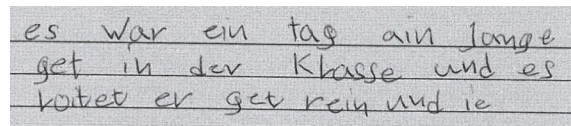 es war ein tag ain Jange
get in der Klasse und es
loitet er get rein und ie